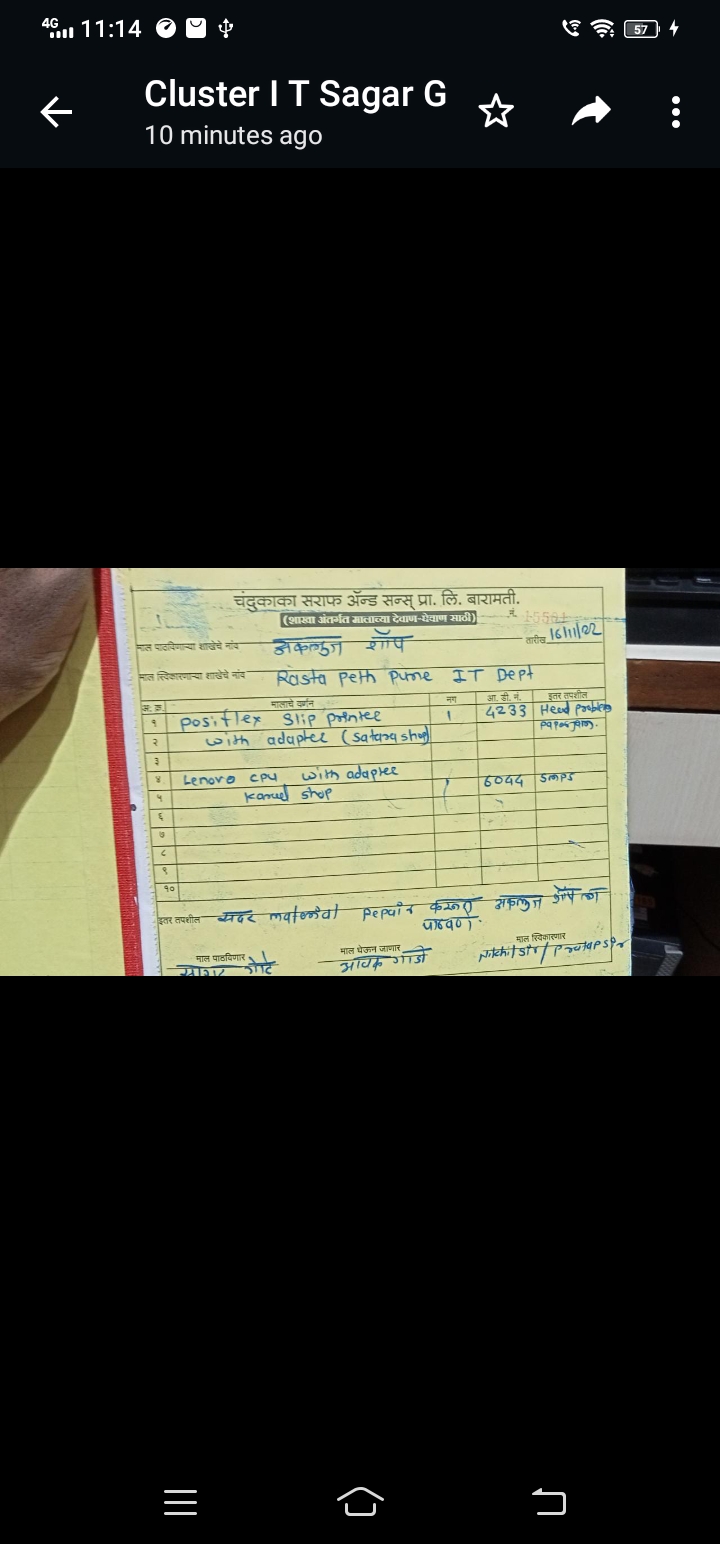 4G 11:14 57
Cluster I T Sagar G
10 minutes ago
चंदुकाका सराफ अ‍ॅन्ड सन्स् प्रा. लि. बारामती.
(शाखा अंतर्गत मालाच्या देवाण-घेवाण साठी)
नं.
माल पाठविणाऱ्या शाखेचे नांव अकलुज शॉप तारीख 16/11/22
माल स्विकारणाऱ्या शाखेचे नांव Rasta Peth Pune IT Dept
अ. क्र. मालाचे वर्णन नग आ. डी. नं. इतर तपशील
१ posiflex Slip printer 1 4233 Head problem
२ with adapter (satara shop) paper jam.
३
४ Lenovo CPU with adapter 1 6044 SMPS
५ shop
६
७
८
९
१०
इतर तपशील सदर material repair करून अकलुज शॉप ला
पाठवणे.
माल पाठविणार माल घेऊन जाणार माल स्विकारणार
Nikhil sir /